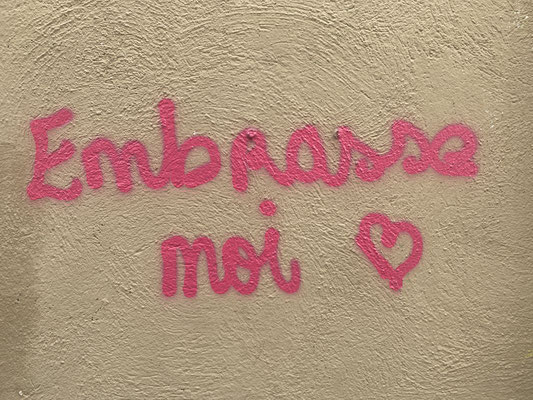 Embrasse
moi